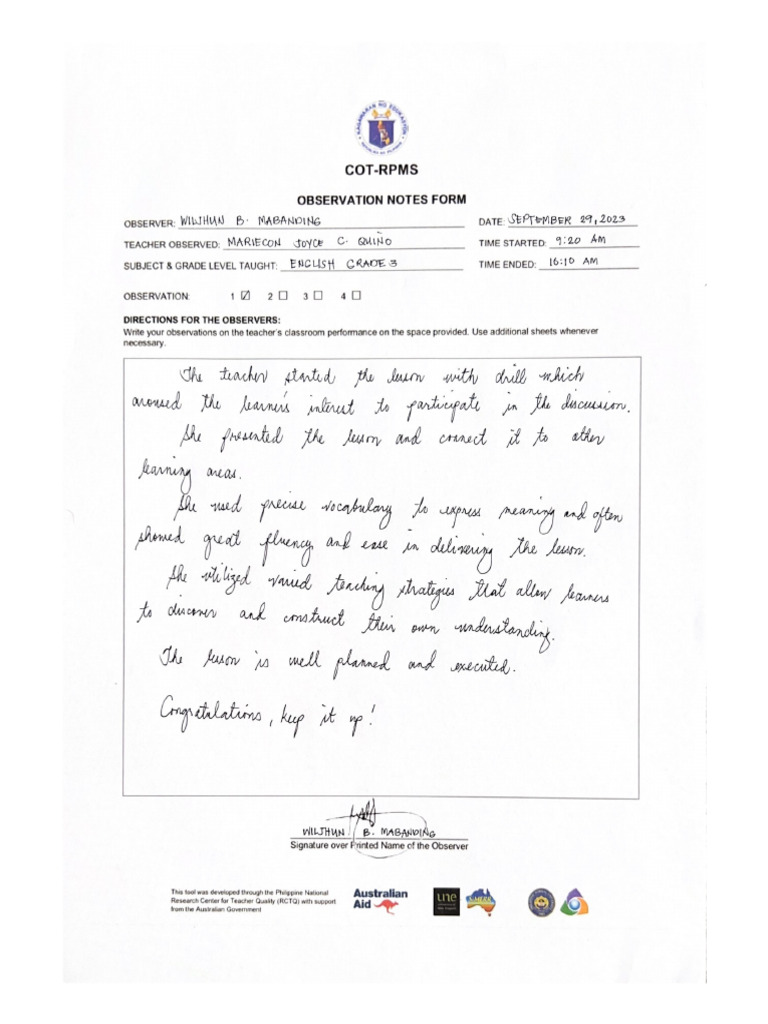 KAGAWARAN NG EDUKASYON
COT-RPMS
OBSERVATION NOTES FORM
OBSERVER: WILJHUN B. MABANDING DATE: SEPTEMBER 29, 2023
TEACHER OBSERVED: MARIECON JOYCE C. QUIÑO TIME STARTED: 9:20 AM
SUBJECT & GRADE LEVEL TAUGHT: ENGLISH GRADE 3 TIME ENDED: 16:10 AM
OBSERVATION: 1 ☑ 2 ☐ 3 ☐ 4 ☐
DIRECTIONS FOR THE OBSERVERS:
Write your observations on the teacher's classroom performance on the space provided. Use additional sheets whenever
necessary.
The teacher started the lesson with drill which
aroused the learner's interest to participate in the discussion.
She presented the lesson and connect it to other
learning areas.
She used precise vocabulary to express meaning and often
showed great fluency and ease in delivering the lesson.
She utilized varied teaching strategies that allow learners
to discover and construct their own understanding.
The lesson is well planned and executed.
Congratulations, keep it up!
WILJHUN B. MABANDING
Signature over Printed Name of the Observer
This tool was developed through the Philippine National
Research Center for Teacher Quality (RCTQ) with support
from the Australian Government
Australian
Aid
une